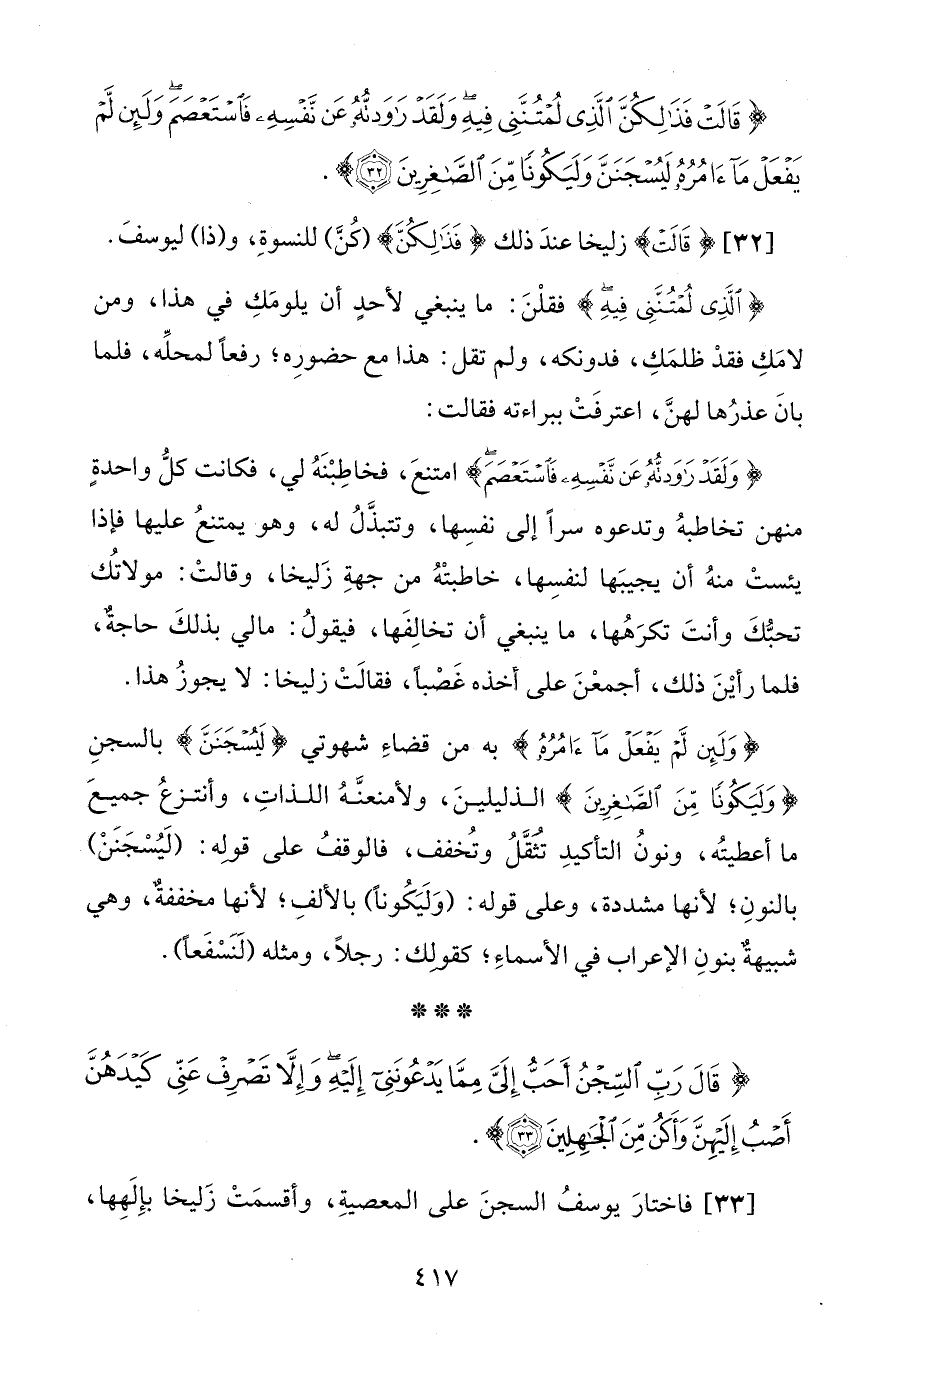 ﴿ قَالَتْ فَذَٰلِكُنَّ ٱلَّذِى لُمْتُنَّنِى فِيهِ ۖ وَلَقَدْ رَٰوَدتُّهُۥ عَن نَّفْسِهِۦ فَٱسْتَعْصَمَ ۖ وَلَئِن لَّمْ
يَفْعَلْ مَآ ءَامُرُهُۥ لَيُسْجَنَنَّ وَلَيَكُونًا مِّنَ ٱلصَّٰغِرِينَ ۝٣٢ ﴾ .
[٣٢] ﴿ قَالَتْ ﴾ زليخا عندَ ذلك ﴿ فَذَٰلِكُنَّ ﴾ (كُنَّ) للنسوةِ، و(ذا) ليوسفَ.
﴿ ٱلَّذِى لُمْتُنَّنِى فِيهِ ۖ ﴾ فقلْنَ: ما ينبغي لأحدٍ أن يلومَكِ في هذا، ومن
لامَكِ فقدْ ظلمَكِ، فدونكه، ولم تقل: هذا مع حضورِه؛ رفعاً لمحلِّه، فلما
بانَ عذرُها لهنَّ، اعترفَتْ ببراءته فقالت:
﴿ وَلَقَدْ رَٰوَدتُّهُۥ عَن نَّفْسِهِۦ فَٱسْتَعْصَمَ ۖ ﴾ امتنعَ، فخاطِبْنَهُ لي، فكانت كلُّ واحدةٍ
منهن تخاطبهُ وتدعوه سراً إلى نفسِها، وتتبذَّلُ له، وهو يمتنعُ عليها فإذا
يئستْ منهُ أن يجيبَها لنفسِها، خاطبتْهُ من جهةِ زَليخا، وقالتْ: مولاتُك
تحبُّكَ وأنتَ تكرَهُها، ما ينبغي أن تخالِفَها، فيقولُ: مالي بذلكَ حاجةٌ،
فلما رأيْنَ ذلك، أجمعْنَ على أخذه غَصْباً، فقالَتْ زليخا: لا يجوزُ هذا.
﴿ وَلَئِن لَّمْ يَفْعَلْ مَآ ءَامُرُهُۥ ﴾ به من قضاءِ شهوتي ﴿ لَيُسْجَنَنَّ ﴾ بالسجنِ
﴿ وَلَيَكُونًا مِّنَ ٱلصَّٰغِرِينَ ﴾ الذليلينَ، ولأمنعنَّهُ اللذاتِ، وأنتزعُ جميعَ
ما أعطيتُه، ونونُ التأكيدِ تثُقَّلُ وتُخفف، فالوقفُ على قوله: (لَيُسْجَنَنْ)
بالنونِ؛ لأنها مشددة، وعلى قوله: (وَلَيَكُوناً) بالألفِ؛ لأنها مخففةٌ، وهي
شبيهةٌ بنونِ الإعراب في الأسماءِ؛ كقولِك: رجلاً، ومثله (لَنَسْفَعاً).
* * *
﴿ قَالَ رَبِّ ٱلسِّجْنُ أَحَبُّ إِلَىَّ مِمَّا يَدْعُونَنِىٓ إِلَيْهِ ۖ وَإِلَّا تَصْرِفْ عَنِّى كَيْدَهُنَّ
أَصْبُ إِلَيْهِنَّ وَأَكُن مِّنَ ٱلْجَٰهِلِينَ ۝٣٣ ﴾ .
[٣٣] فاختارَ يوسفُ السجنَ على المعصيةِ، وأقسمَتْ زَليخا بإِلَهِها،
٤١٧